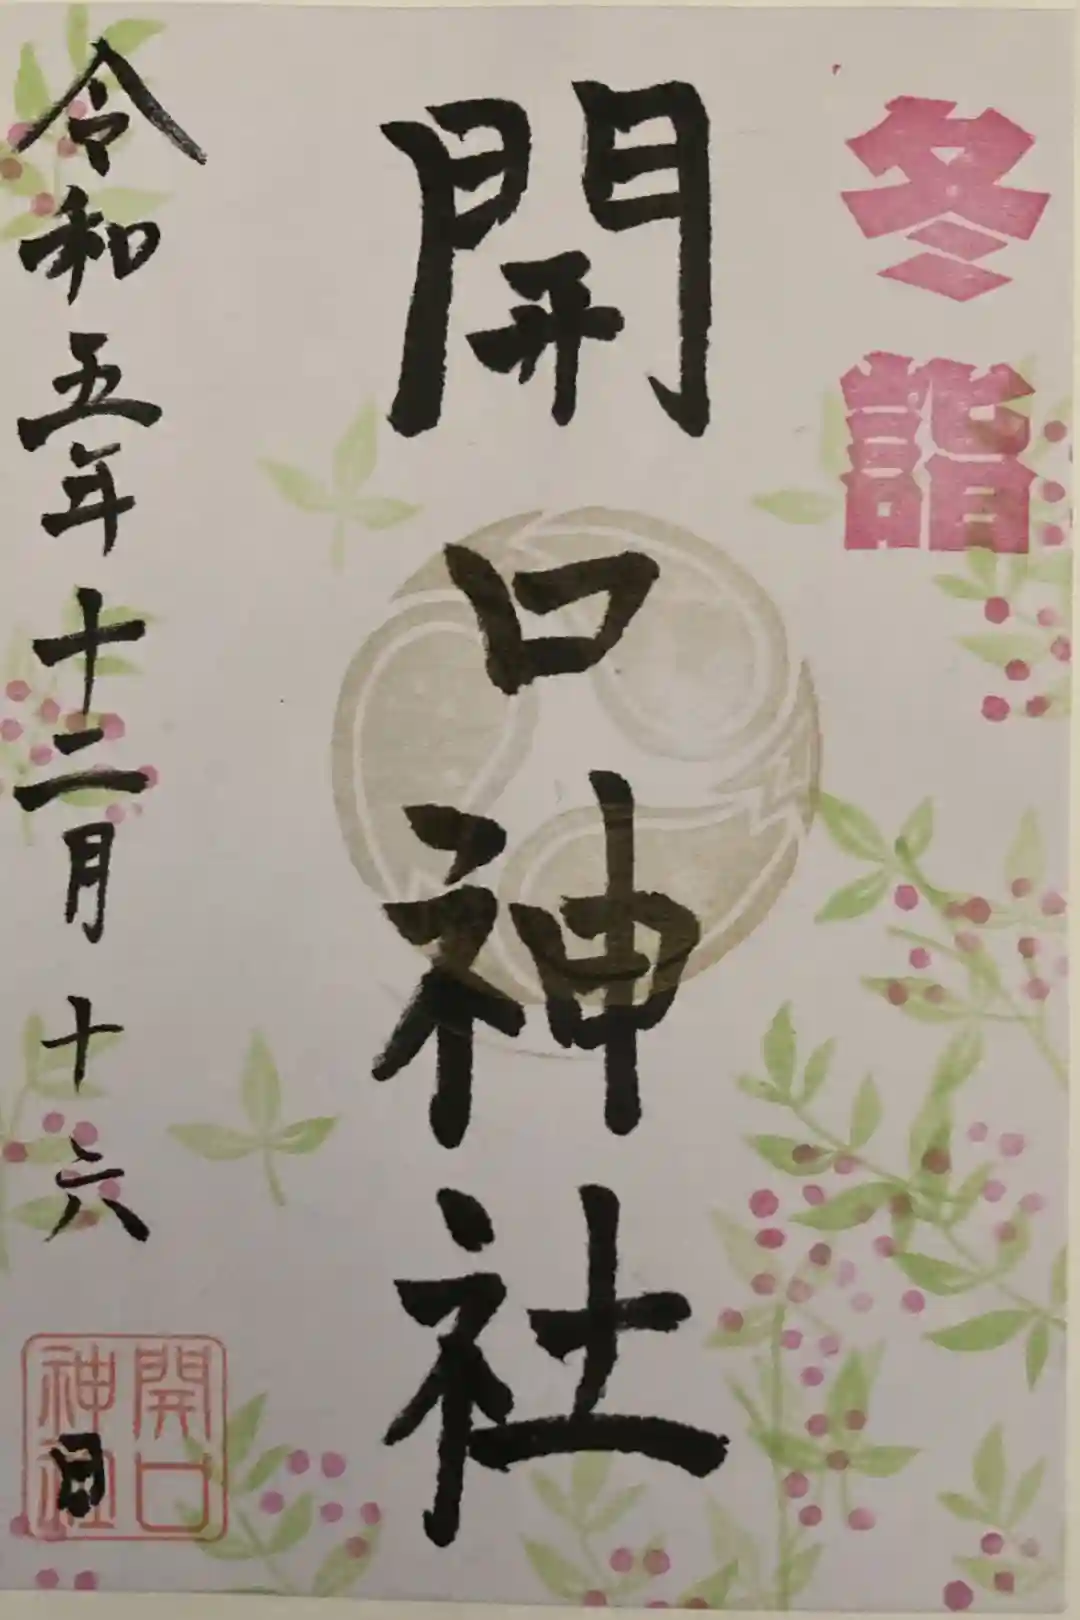 冬詣
開口神社
令和五年十二月十六日
開口
神社